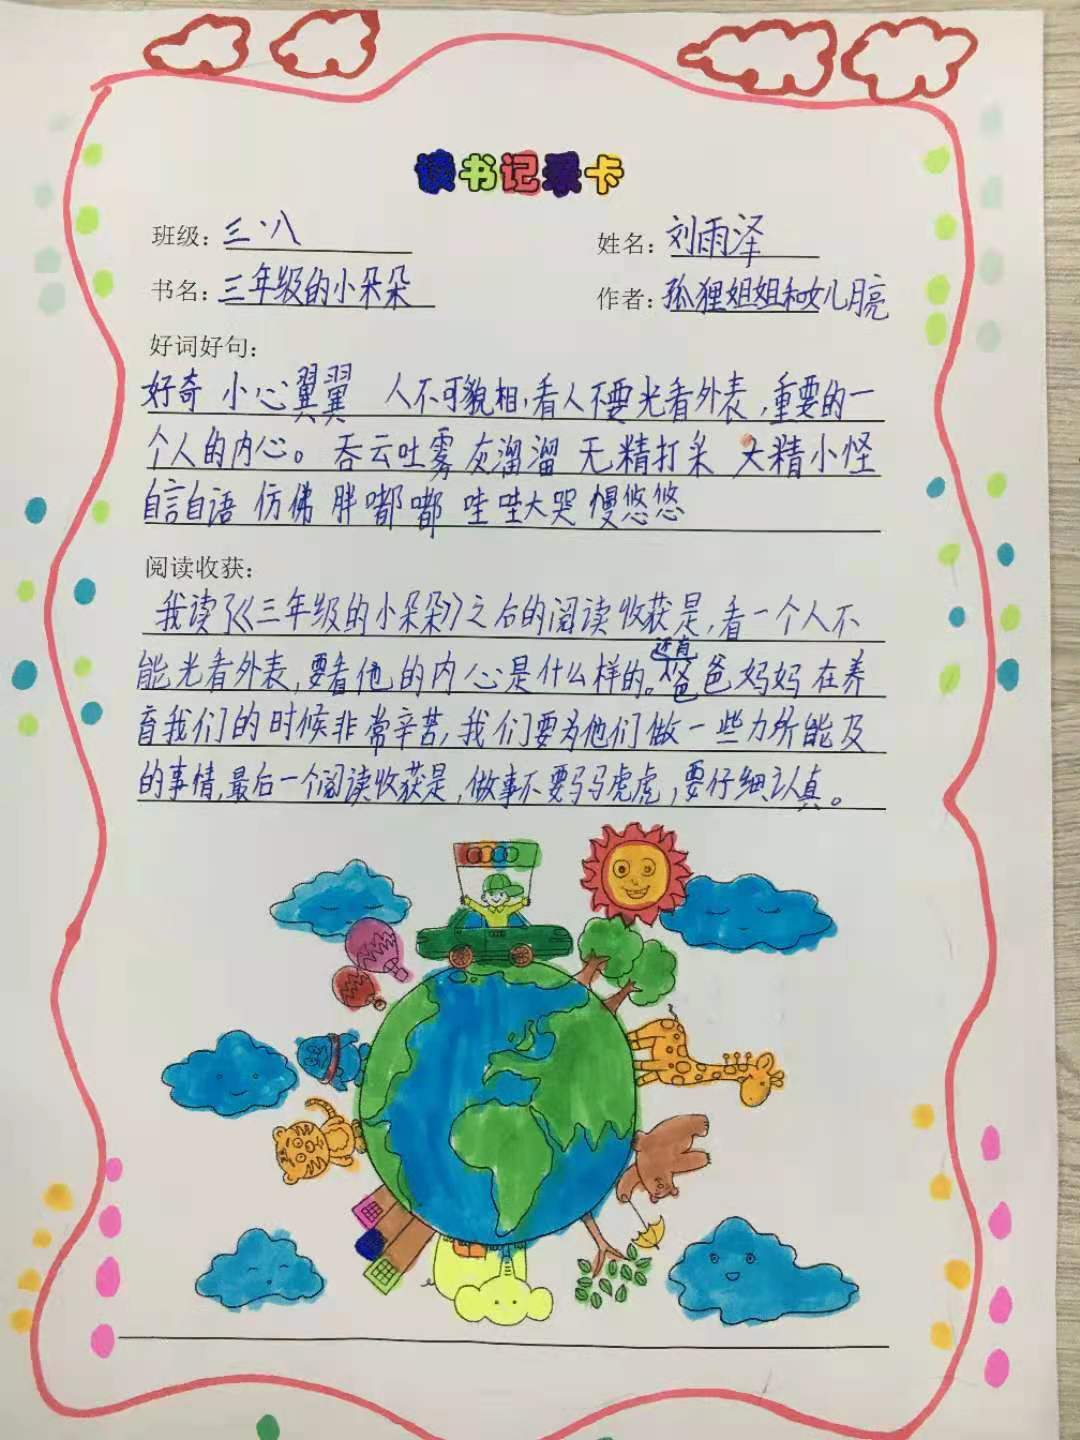 读书记录卡
班级：三·八 姓名：刘雨泽
书名：三年级的小朵朵 作者：狐狸姐姐和女儿月亮
好词好句：
好奇 小心翼翼 人不可貌相，看人不要光看外表，重要的一
个人的内心。 吞云吐雾 灰溜溜 无精打采 大精小怪
自言自语 仿佛 胖嘟嘟 哇哇大哭 慢悠悠
阅读收获：
我读了《三年级的小朵朵》之后的阅读收获是，看一个人不
能光看外表，要看他的内心是什么样的。还有爸爸妈妈在养
育我们的时候非常辛苦，我们要为他们做一些力所能及
的事情，最后一个阅读收获是，做事不要马马虎虎，要仔细认真。